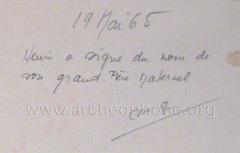 19 Mai 65
Henri a signé du nom de
son grand. Père Maternel
www.archeophone.org